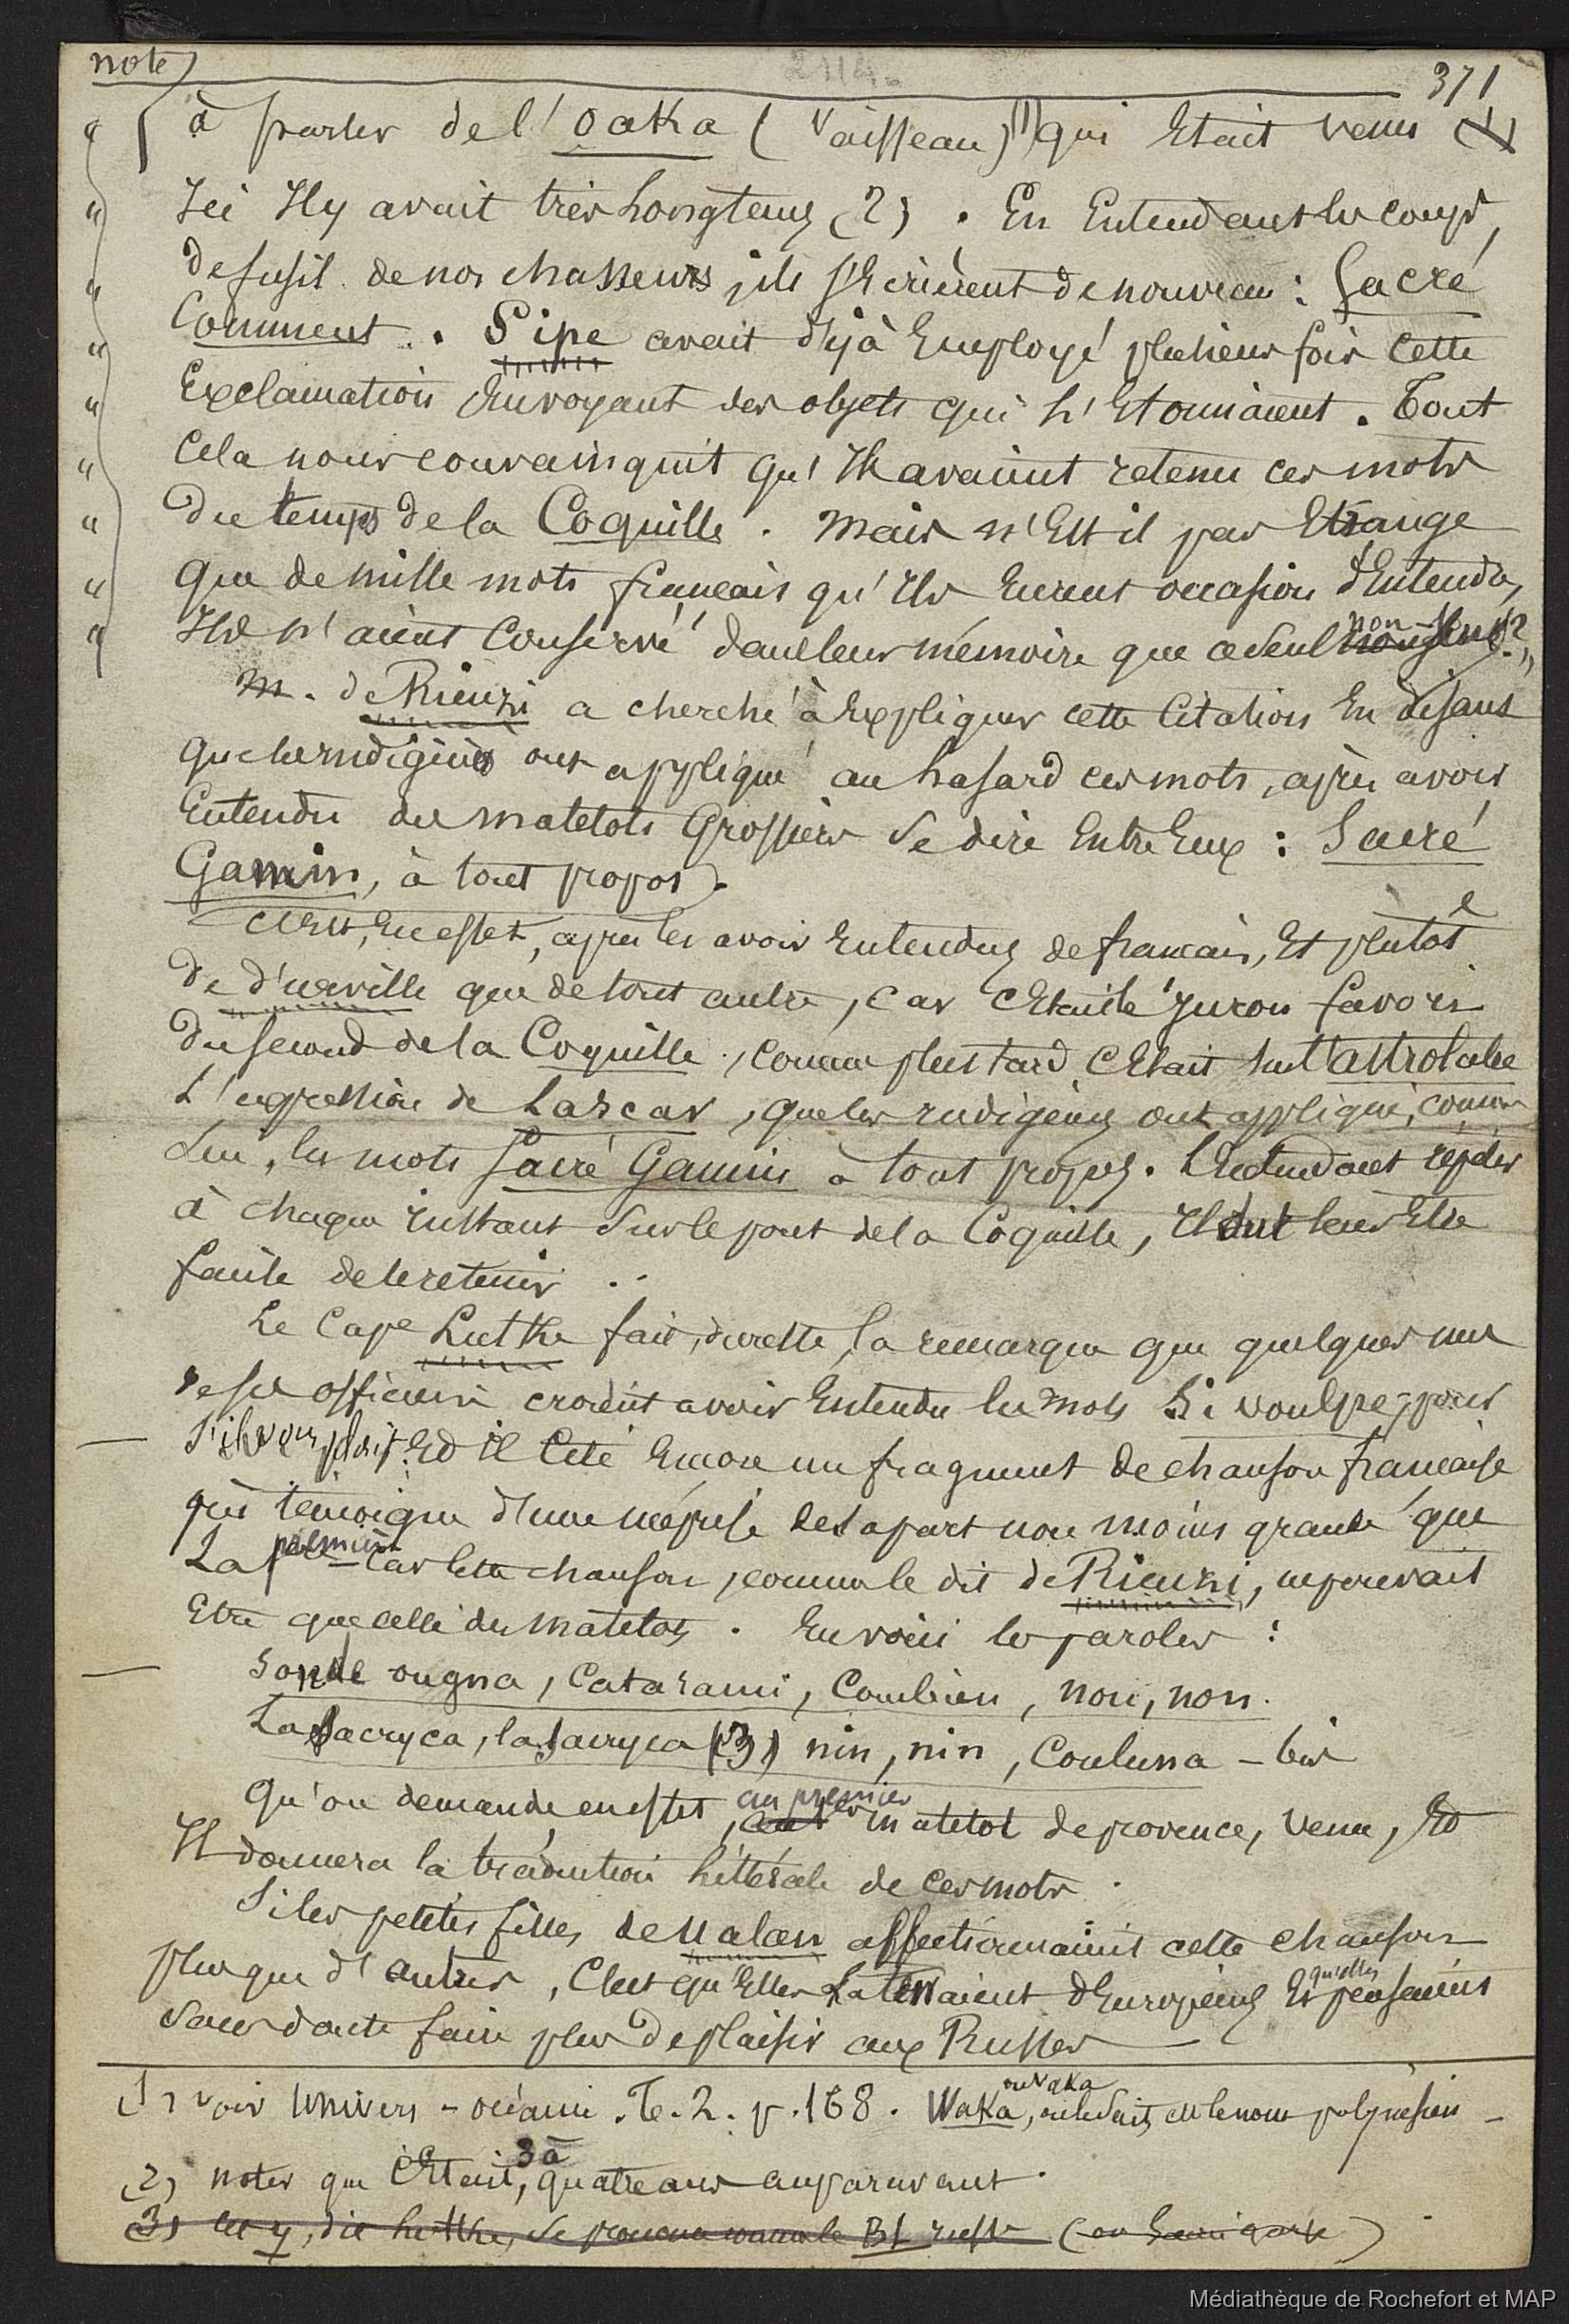 note
371
" à parler de l'oaka (vaisseau) (1) qui Etait venu
" Ici Il y avait très Longtems (2). En Entendant les coups,
" de fusil de nos chasseurs, ils s'Ecrièrent de nouveau : Sacré
" Comment. Sipe avait déjà Employé plusieurs fois Cette
" Exclamation En voyant des objets qui l'Etonnaient. Tout
" Cela nous convainquit qu'Ils avaient retenu ces mots
" Du temps de la Coquille. Mais n'Est il pas Etrange
" Que de mille mots français qu'Ils Eurent occasion d'Entendre,
" Ils n'aient Conservé dans leur mémoire que ce seul non-sens ? "
M. de Rienzi a cherché à Expliquer cette Citation En disant
que les Indigènes ont appliqué au hasard ces mots, après avoir
Entendu des matelots Grossiers Se dire Entre Eux : Sacré
Gamin, à tout propos.
C'Est, En effet, après les avoir Entendus de français, Et plutôt
De d'urville que de tout autre, Car c'Etait le Juron favori
Du second de la Coquille, comme plus tard C'Etait sur l'astrolabe
L'expression de Lascar, que les Indigènes ont appliqué, comme
Lui, les mots Sacré Gamin à tout propos. L'Entendant répéter
à chaque Instant Sur le pont de la Coquille, Il dut leur Etre
facile de le retenir.
Le Cape Lutke fait, du reste, la remarque que quelques uns
de ses officiers croient avoir Entendu les mots Si voulpe, pour
S'il vous plait. Et Il Cite Encore un fragment de chanson française
qui témoigne d'une méprise de sa part non moins grande que
La première car cette chanson, comme le dit de Rienzi, ne pouvait
Etre que celle des matelots. En voici les paroles :
Sonde ougna, Catarami, Combien, non, non.
La sacryca, la sacryca (3) nin, nin, Couluna - bis
Qu'on demande en effet, au premier matelot de provence, venu, Et
Il donnera la traduction littérale de Ces mots.
Si les petites filles de Ualan affectionnaient cette chanson
plus que d'autres, C'est qu'Elles La tenaient d'Européens Et qu'elles pensaient
Sans doute faire plus de plaisir aux Russes
(1) voir Univers - océanie. T. 2. p. 168. Waka, ou vaka, on le sait, est le nom polynésien -
(2) noter que C'Etait, 3 à quatre ans auparavant.
(3) cet y, dit Lutke, se prononce comme le BI russe
Médiathèque de Rochefort et MAP